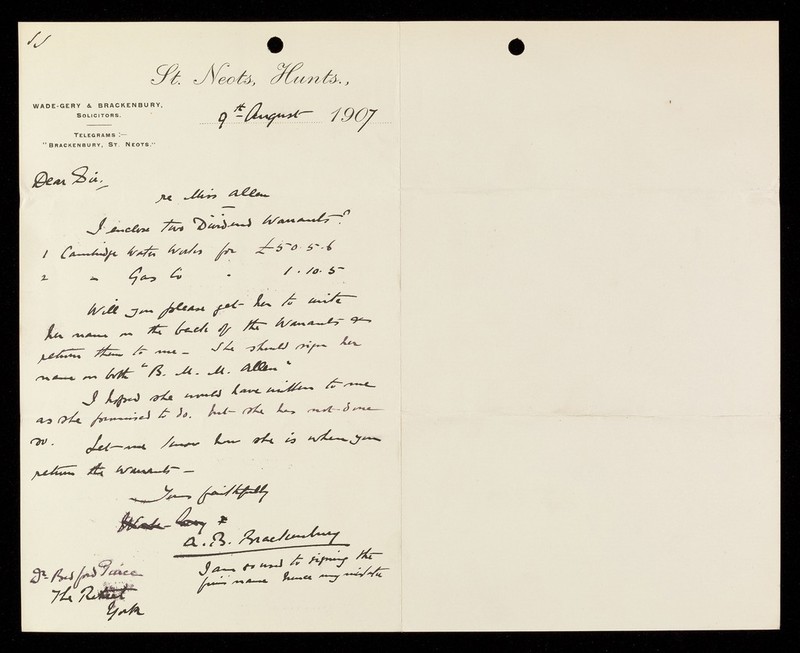 St. Neots, Hunts.,
WADE-GERY & BRACKENBURY,
SOLICITORS.
TELEGRAMS :—
"BRACKENBURY, ST. NEOTS."
9th August 1907
Dear Sir,
re Miss Allen
I enclose two Dividend Warrants
1 Cambridge Water Works for £50.5.6
2 " Gas Co " 1.10.5
Will you please get her to write
her name on the back of the Warrants &
return them to me — She should sign her
name on both "B. M. M. Allen"
I hoped she would have written to me
as she promised to do. but she has not done
so. Let me know how she is when you
return the Warrants —
Yours faithfully
Wade-Gery &
A. B. Brackenbury
I am so used to signing the
firm's name hence my mistake
Dr Bedford Pierce
The Retreat
York